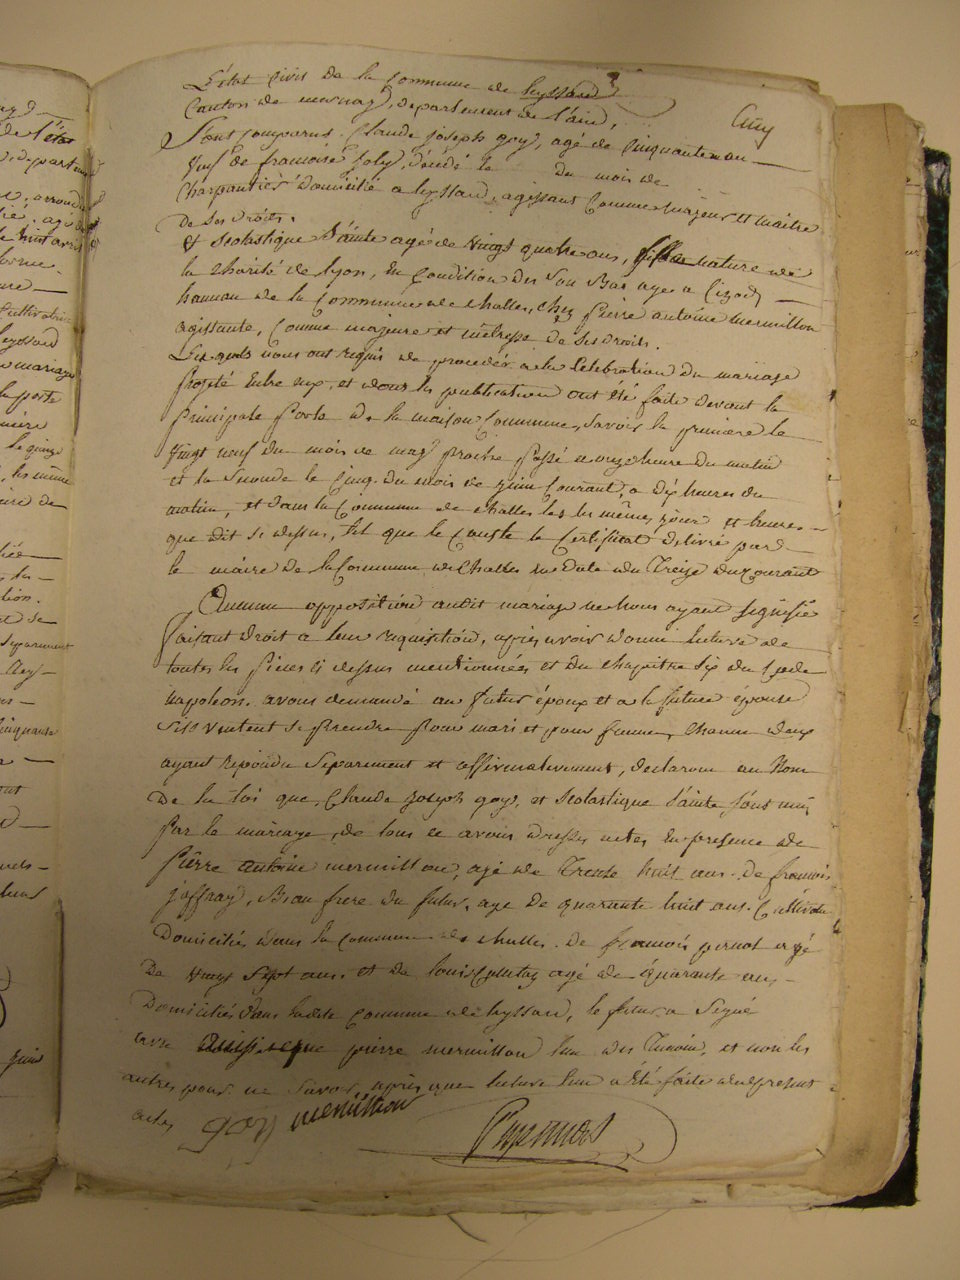 L'état civil de la commune de leyssard
Canton de      , departement de l'ain,
Sont comparus. Claude joseph goy, agé de Cinquante un
veuf de francoise joly, décédé le du mois de
Charpantier domicilié a leyssard, agissant Comme majeur et maitre
De ses droits.
et scolastique Sainte agée de vingt quatre ans, fille nature de
la charité de lyon, en condition des son Bas age a Cizod
hameau de la Commune de challes, chez pierre antoine mermillon
agissante, Comme majeure et métresse de ses droits.
Les quels nous ont requis de procedér a la Célébration du mariage
projété Entre eux, et dont les publication ont été faite devant la
principale porte de la maison Commune, savoir la première le
vingt neuf du mois de may proche passé a onze heure du matin
et la seconde le Cinq du mois de juin Courant, a dix heures du
matin, et dans la Commune de challes les mêmes jour et heures
que dit si dessus, tel que le Conste le Certificat délivré par
le maire de la Commune de Challes en Date du Treize du Courant
Aucune opposition audit mariage ne nous ayant signifié
faisant droit a leur requisition, après avoir donné lecture de
toutes les pièces ci dessus mentionnées et du chapitre six du Code
napoleon. avons demandé au futur époux et a la future épouse
s'ils veulent se prendre pour mari et pour femme, chacun deux
ayant repondu Séparement et affirmativement, declarons au Nom
De la loi que, Claude joseph goy, et scolastique Sainte sont unis
par le mariage, de tous ce avons dressés actes En presence de
pierre antoine mermillon, agé de Trente huit ans. De francois
joffray, Beau frere du futur, age de quarante huit ans. Cultivateur
Domiciliés dans la commune de challes. De francois        agé
De vingt sept ans et de louis         agé de quarante ans
Domiciliés dans ladite Commune de leyssard, le futur a Signé
avec         pierre mermillon lun des Temoins, et non les
autres pour ne Savoir, après que lecture leur a été faite du present
actes
goy mermillon